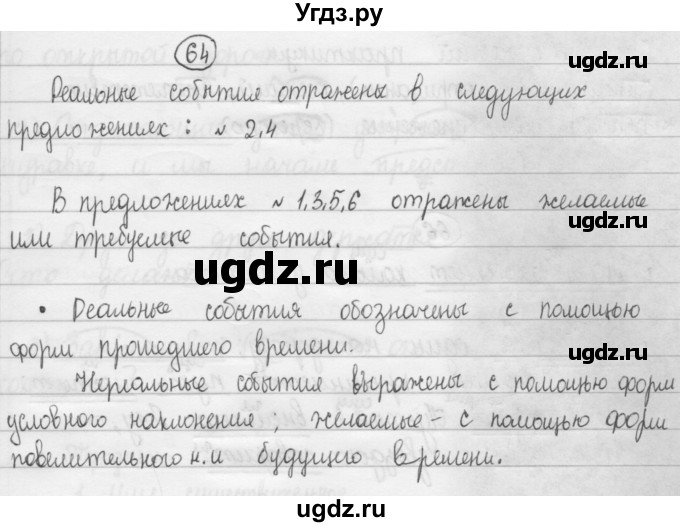 Угдз.ру
64
ugdz.ru
Реальные события отражены в следующих
ugdz.ru
предложениях: № 2,4
В предложениях № 1,3,5,6 отражены желаемые
ugdz.ru
или требуемые события.
ugdz.ru
• Реальные события обозначены с помощью
форм прошедшего времени.
ugdz.ru
Нереальные события выражены с помощью форм
условного наклонения; желаемые – с помощью форм
ugdz.ru
повелительного н. и будущего времени.
ugdz.ru